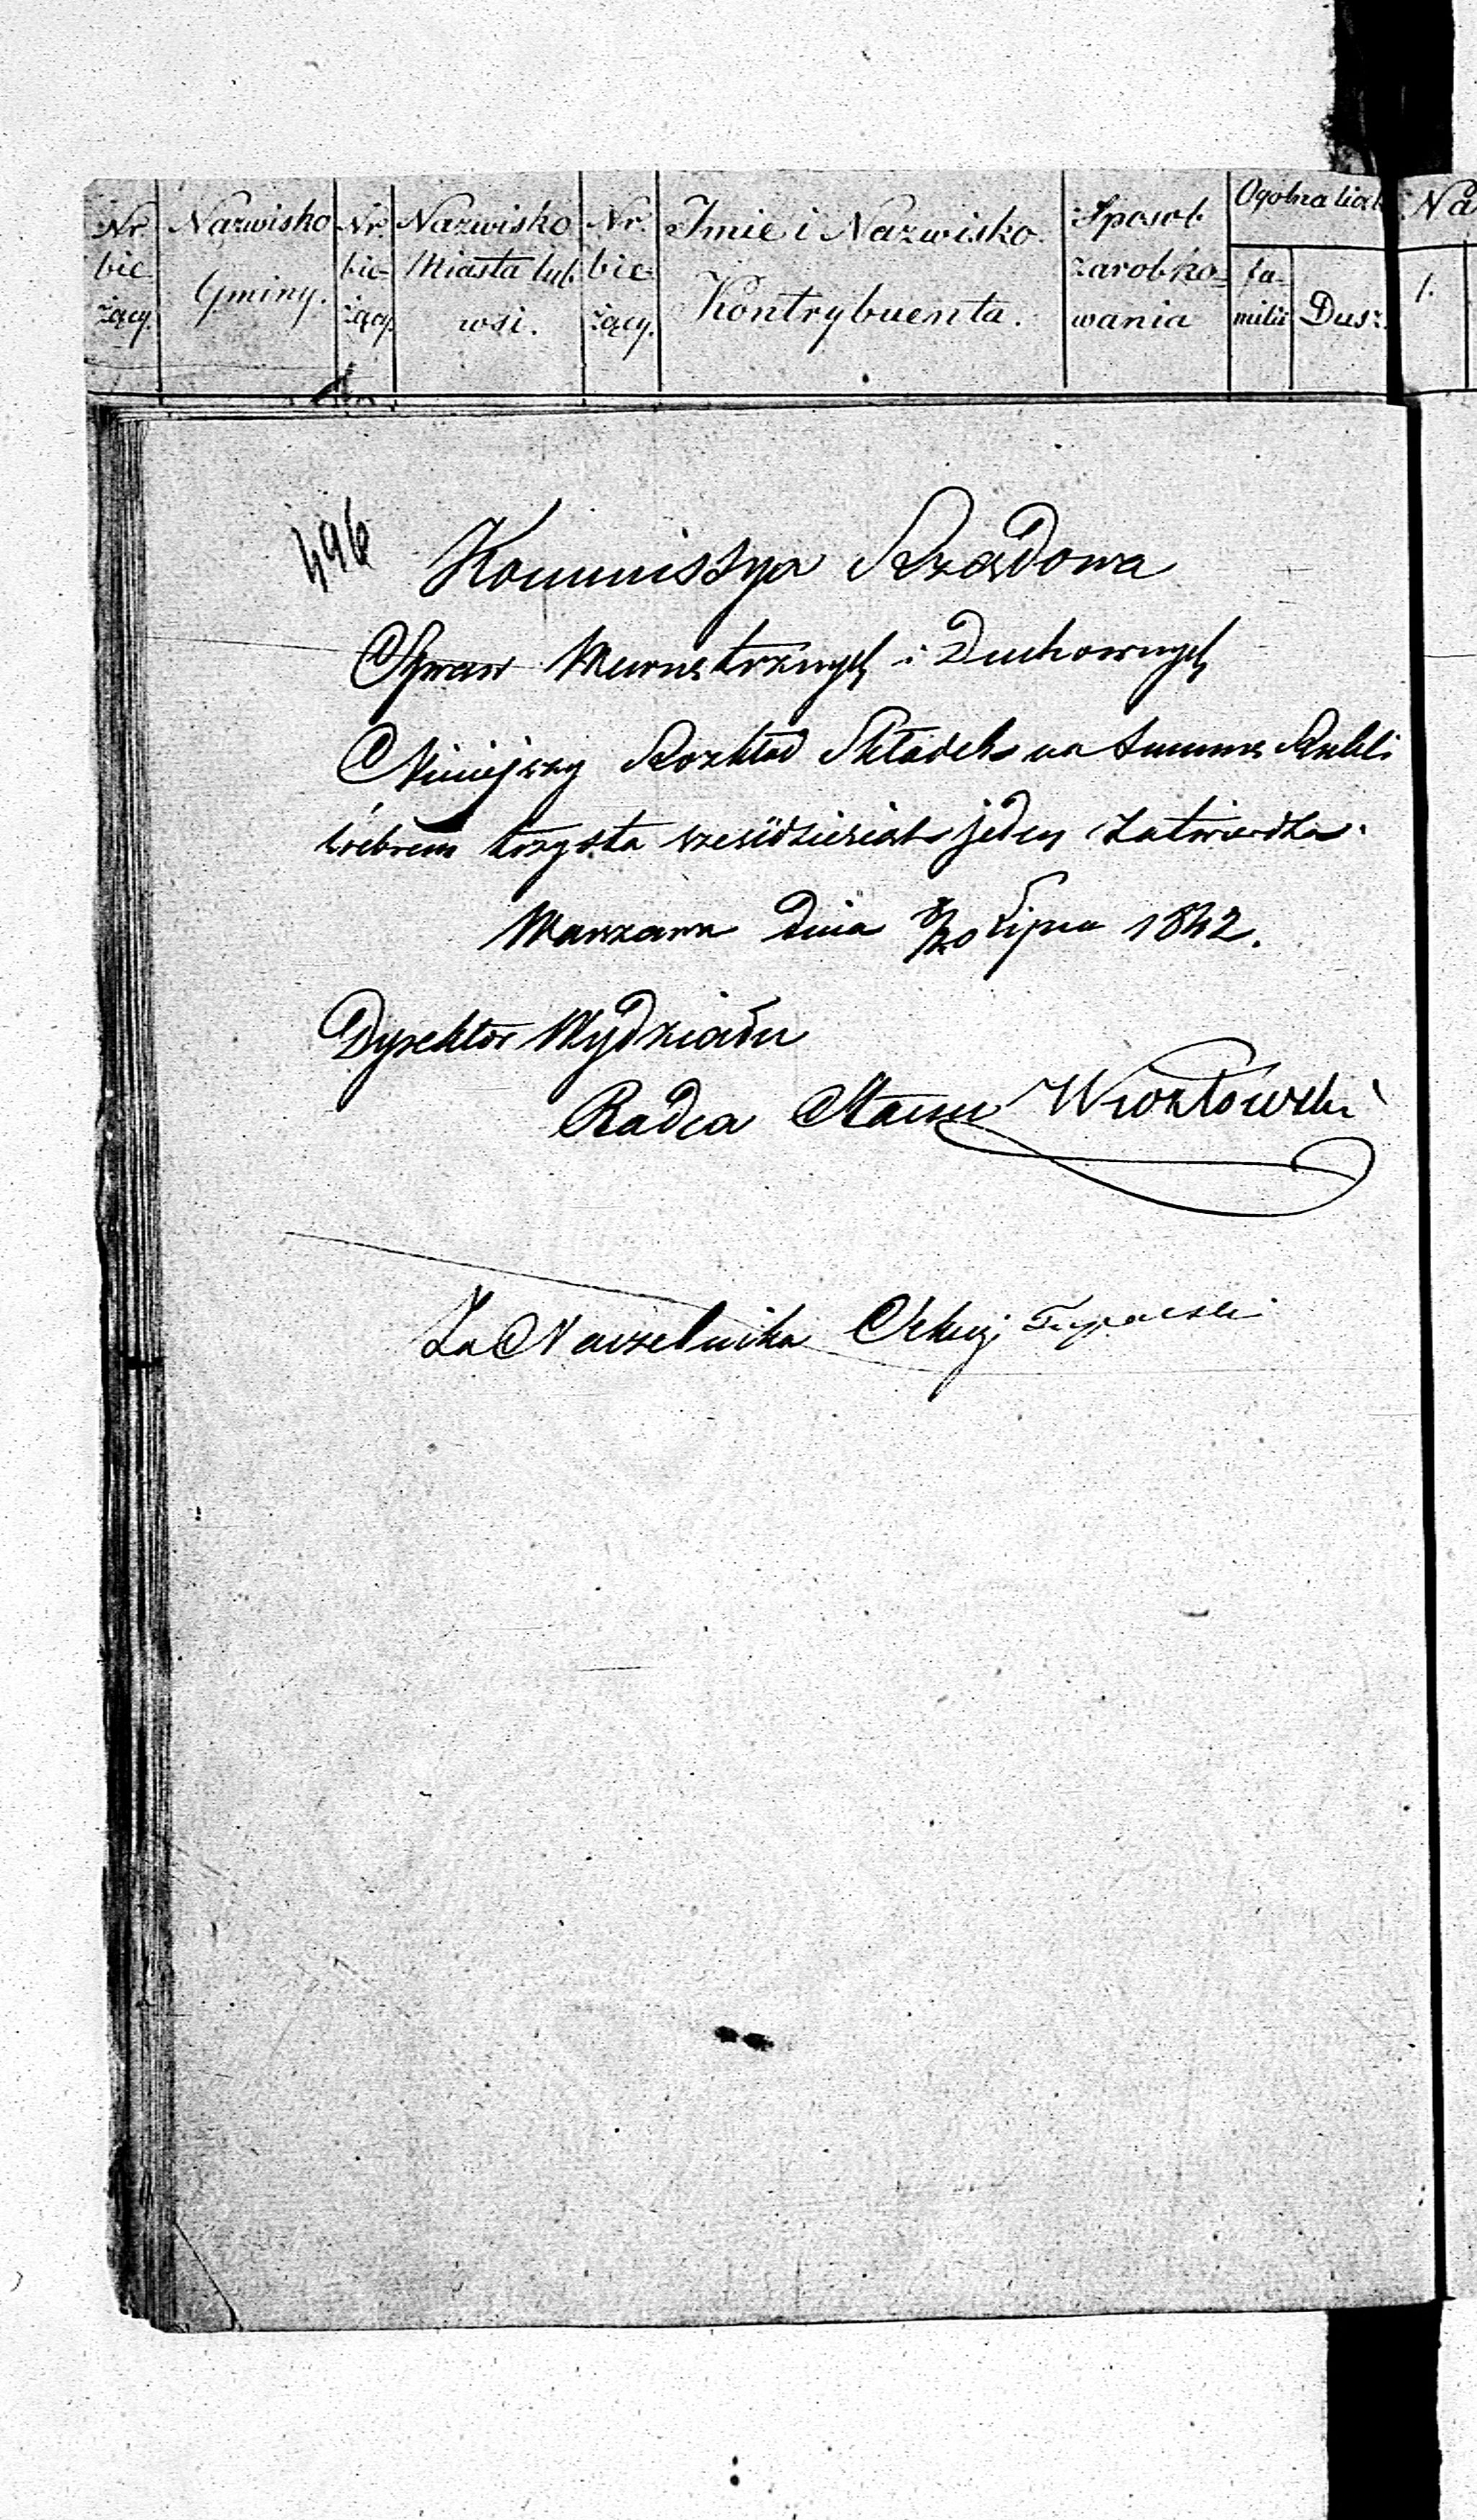 Nr. bie- żący.
Nazwisko Gminy.
Nr. bie- żący.
Nazwisko Miasta lub wsi.
Nr. bie- żący.
Imie i Nazwisko Kontrybuenta.
Sposob zarobko- wania
Ogolna liczb
fa- milii
Dusz.
Na
1.
496
Kommissya Rządowa
Spraw Wewnętrznych i Duchownych
Niniejszy Rozkład Składek na Summę Rubli
srebrem trzysta sześćdziesiąt jeden zatwierdza.
Warszawa dnia 8/20 Lipca 1842.
Dyrektor Wydziału
Radca Stanu
Za Naczelnika